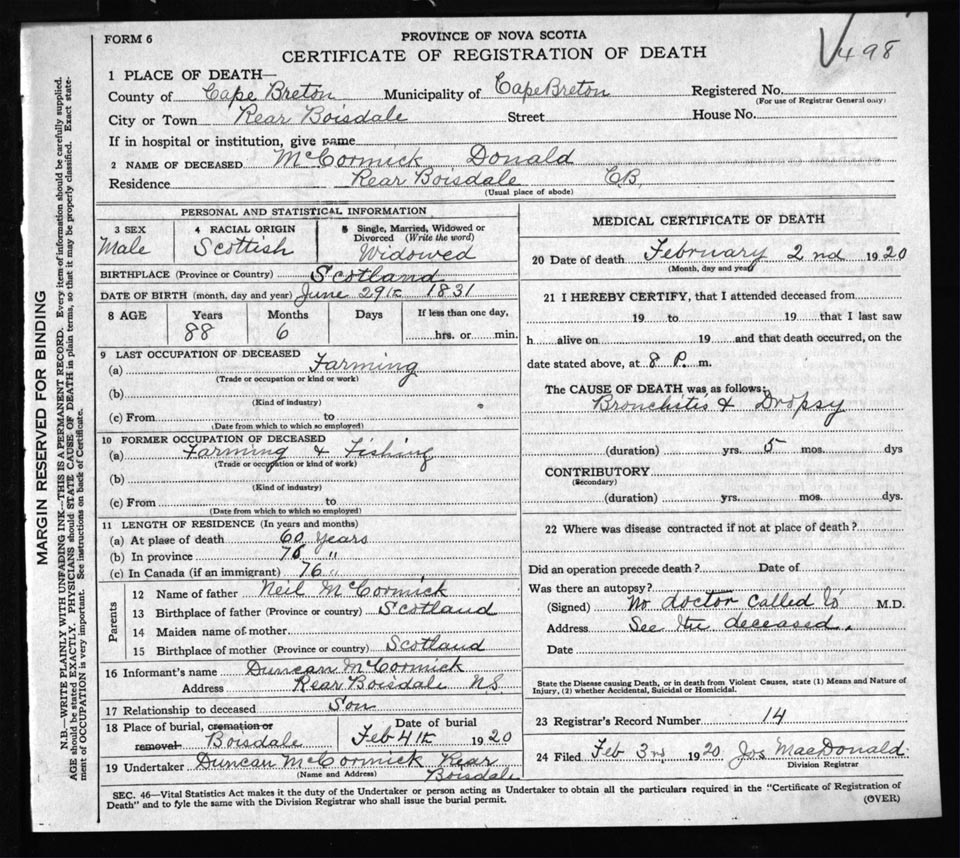 FORM 6
PROVINCE OF NOVA SCOTIA
CERTIFICATE OF REGISTRATION OF DEATH
498
1 PLACE OF DEATH—
County of Cape Breton Municipality of Cape Breton Registered No.
(For use of Registrar General only)
City or Town Rear Boisdale Street House No.
If in hospital or institution, give name
2 NAME OF DECEASED McCormick Donald
Residence Rear Boisdale C.B.
(Usual place of abode)
PERSONAL AND STATISTICAL INFORMATION
3 SEX 4 RACIAL ORIGIN 5 Single, Married, Widowed or Divorced (Write the word)
Male Scottish Widowed
BIRTHPLACE (Province or Country) Scotland
DATE OF BIRTH (month, day and year) June 29th 1831
8 AGE Years Months Days If less than one day,
88 6 hrs. or min.
9 LAST OCCUPATION OF DECEASED
(a) Farming
(Trade or occupation or kind or work)
(b)
(Kind of industry)
(c) From to
(Date from which to which so employed)
10 FORMER OCCUPATION OF DECEASED
(a) Farming & Fishing
(Trade or occupation or kind of work)
(b)
(Kind of industry)
(c) From to
(Date from which to which so employed)
11 LENGTH OF RESIDENCE (In years and months)
(a) At place of death 60 years
(b) In province 76 "
(c) In Canada (if an immigrant) 76 "
Parents
12 Name of father Neil McCormick
13 Birthplace of father (Province or country) Scotland
14 Maiden name of mother
15 Birthplace of mother (Province or country) Scotland
16 Informant's name Duncan McCormick
Address Rear Boisdale NS
17 Relationship to deceased Son
18 Place of burial, cremation or removal Boisdale Date of burial Feb 4th 1920
19 Undertaker Duncan McCormick Rear Boisdale
(Name and Address)
MEDICAL CERTIFICATE OF DEATH
20 Date of death February 2nd 1920
(Month, day and year)
21 I HEREBY CERTIFY, that I attended deceased from
19 to 19 that I last saw
h alive on 19 and that death occurred, on the
date stated above, at 8 P. m.
The CAUSE OF DEATH was as follows:
Bronchitis & Dropsy
(duration) yrs. 5 mos. dys
CONTRIBUTORY
(Secondary)
(duration) yrs. mos. dys.
22 Where was disease contracted if not at place of death?
Did an operation precede death? Date of
Was there an autopsy?
(Signed) No doctor called to M.D.
Address See the deceased.
Date
State the Disease causing Death, or in death from Violent Causes, state (1) Means and Nature of
Injury, (2) whether Accidental, Suicidal or Homicidal.
23 Registrar's Record Number 14
24 Filed Feb 3rd 1920 Jos MacDonald
Division Registrar
SEC. 46—Vital Statistics Act makes it the duty of the Undertaker or person acting as Undertaker to obtain all the particulars required in the "Certificate of Registration of
Death" and to fyle the same with the Division Registrar who shall issue the burial permit.
(OVER)
MARGIN RESERVED FOR BINDING
N.B.—WRITE PLAINLY WITH UNFADING INK—THIS IS A PERMANENT RECORD. Every item of information should be carefully supplied.
AGE should be stated EXACTLY. PHYSICIANS should STATE CAUSE OF DEATH in plain terms, so that it may be properly classified. Exact state-
ment of OCCUPATION is very important. See instructions on back of Certificate.